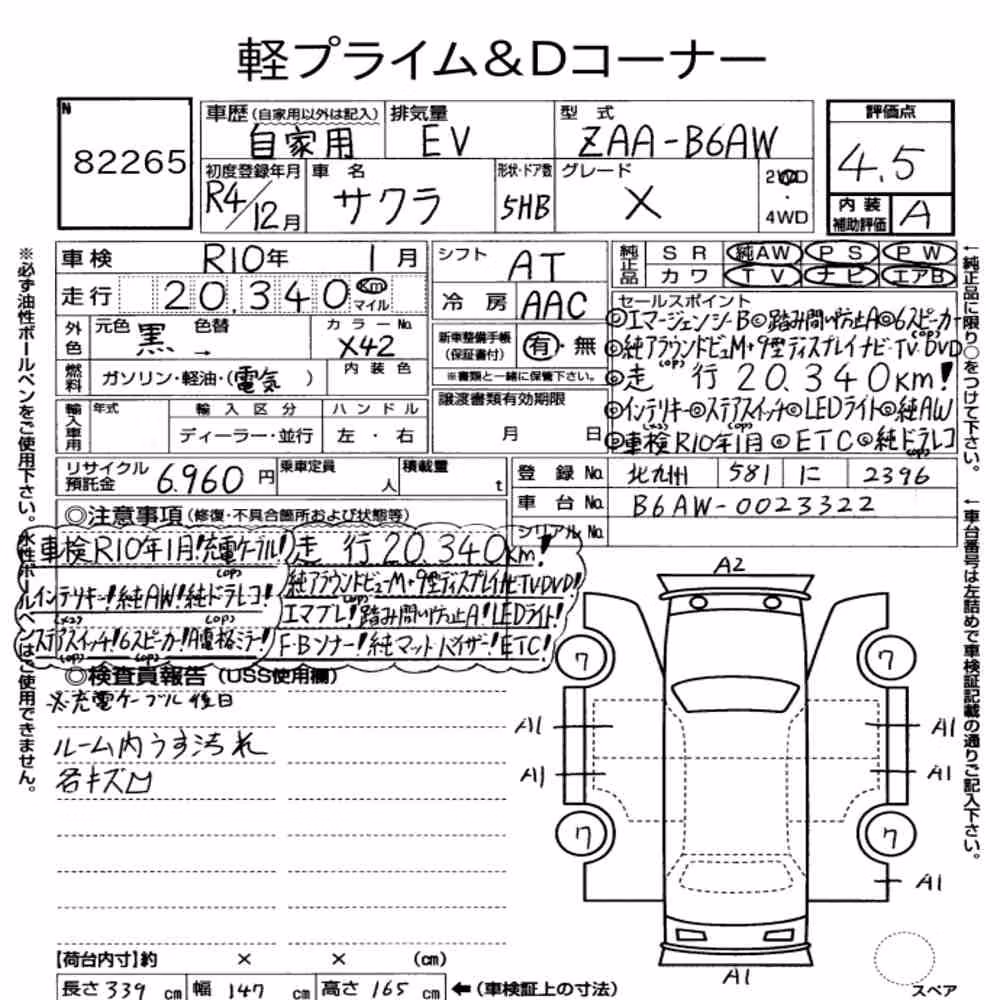 軽プライム&Dコーナー
N
82265
車歴(自家用以外は記入)
自家用
排気量
EV
型式
ZAA-B6AW
評価点
4.5
初度登録年月
R4/12月
車名
サクラ
形状・ドア数
5HB
グレード
X
2WD
・
4WD
内装
補助評価
A
車検
R10年 1月
走行
20,340 Km
マイル
外色
元色
黒
色替
→
カラーNo.
X42
燃料
ガソリン・軽油・(電気)
内装色
輸入車用
年式
輸入区分
ディーラー・並行
ハンドル
左・右
シフト
AT
冷房
AAC
新車整備手帳
(保証書付)
有・無
※書類と一緒に保管下さい。
譲渡書類有効期限
月 日
純正品
SR 純AW PS PW
カワ TV ナビ エアB
セールスポイント
◎エマージェンシーB◎踏み間い防止A◎6スピーカー(op)
◎純アラウンドビューM・9型ディスプレイナビ・TV・DVD
(op)
◎走行20,340km!
◎インテリキー◎ステアスイッチ◎LEDライト◎純AW
(×2) (op)
◎車検R10年1月◎ETC◎純ドラレコ
(op)
リサイクル預託金
6,960円
乗車定員
人
積載量
t
登録No.
北九州 581 に 2396
車台No.
B6AW-0023322
シリアルNo.
◎注意事項(修復・不具合箇所および状態等)
車検R10年1月!充電ケーブル!
(op)
インテリキー!純AW!純ドラレコ!
(×2) (op)
ステアスイッチ!6スピーカー!A電格ミラー!
(op) (op)
走行20,340km!
純アラウンドビューM・9型ディスプレイナビTVDVD!
(op)
エマブレ!踏み間い防止A!LEDライト!
F・Bソナー!純マットバイザー!ETC!
◎検査員報告(USS使用欄)
※充電ケーブル後日
ルーム内うす汚れ
各キズ凹
A2
7
7
A1
A1
A1
A1
7
7
A1
A1
【荷台内寸】約 × × (cm)
長さ 339 cm 幅 147 cm 高さ 165 cm ←(車検証上の寸法)
スペア
※必ず油性ボールペンをご使用下さい。水性ボールペンはご使用できません。
↑純正品に限り○をつけて下さい。
↑車台番号は左詰めで車検証記載の通りご記入下さい。